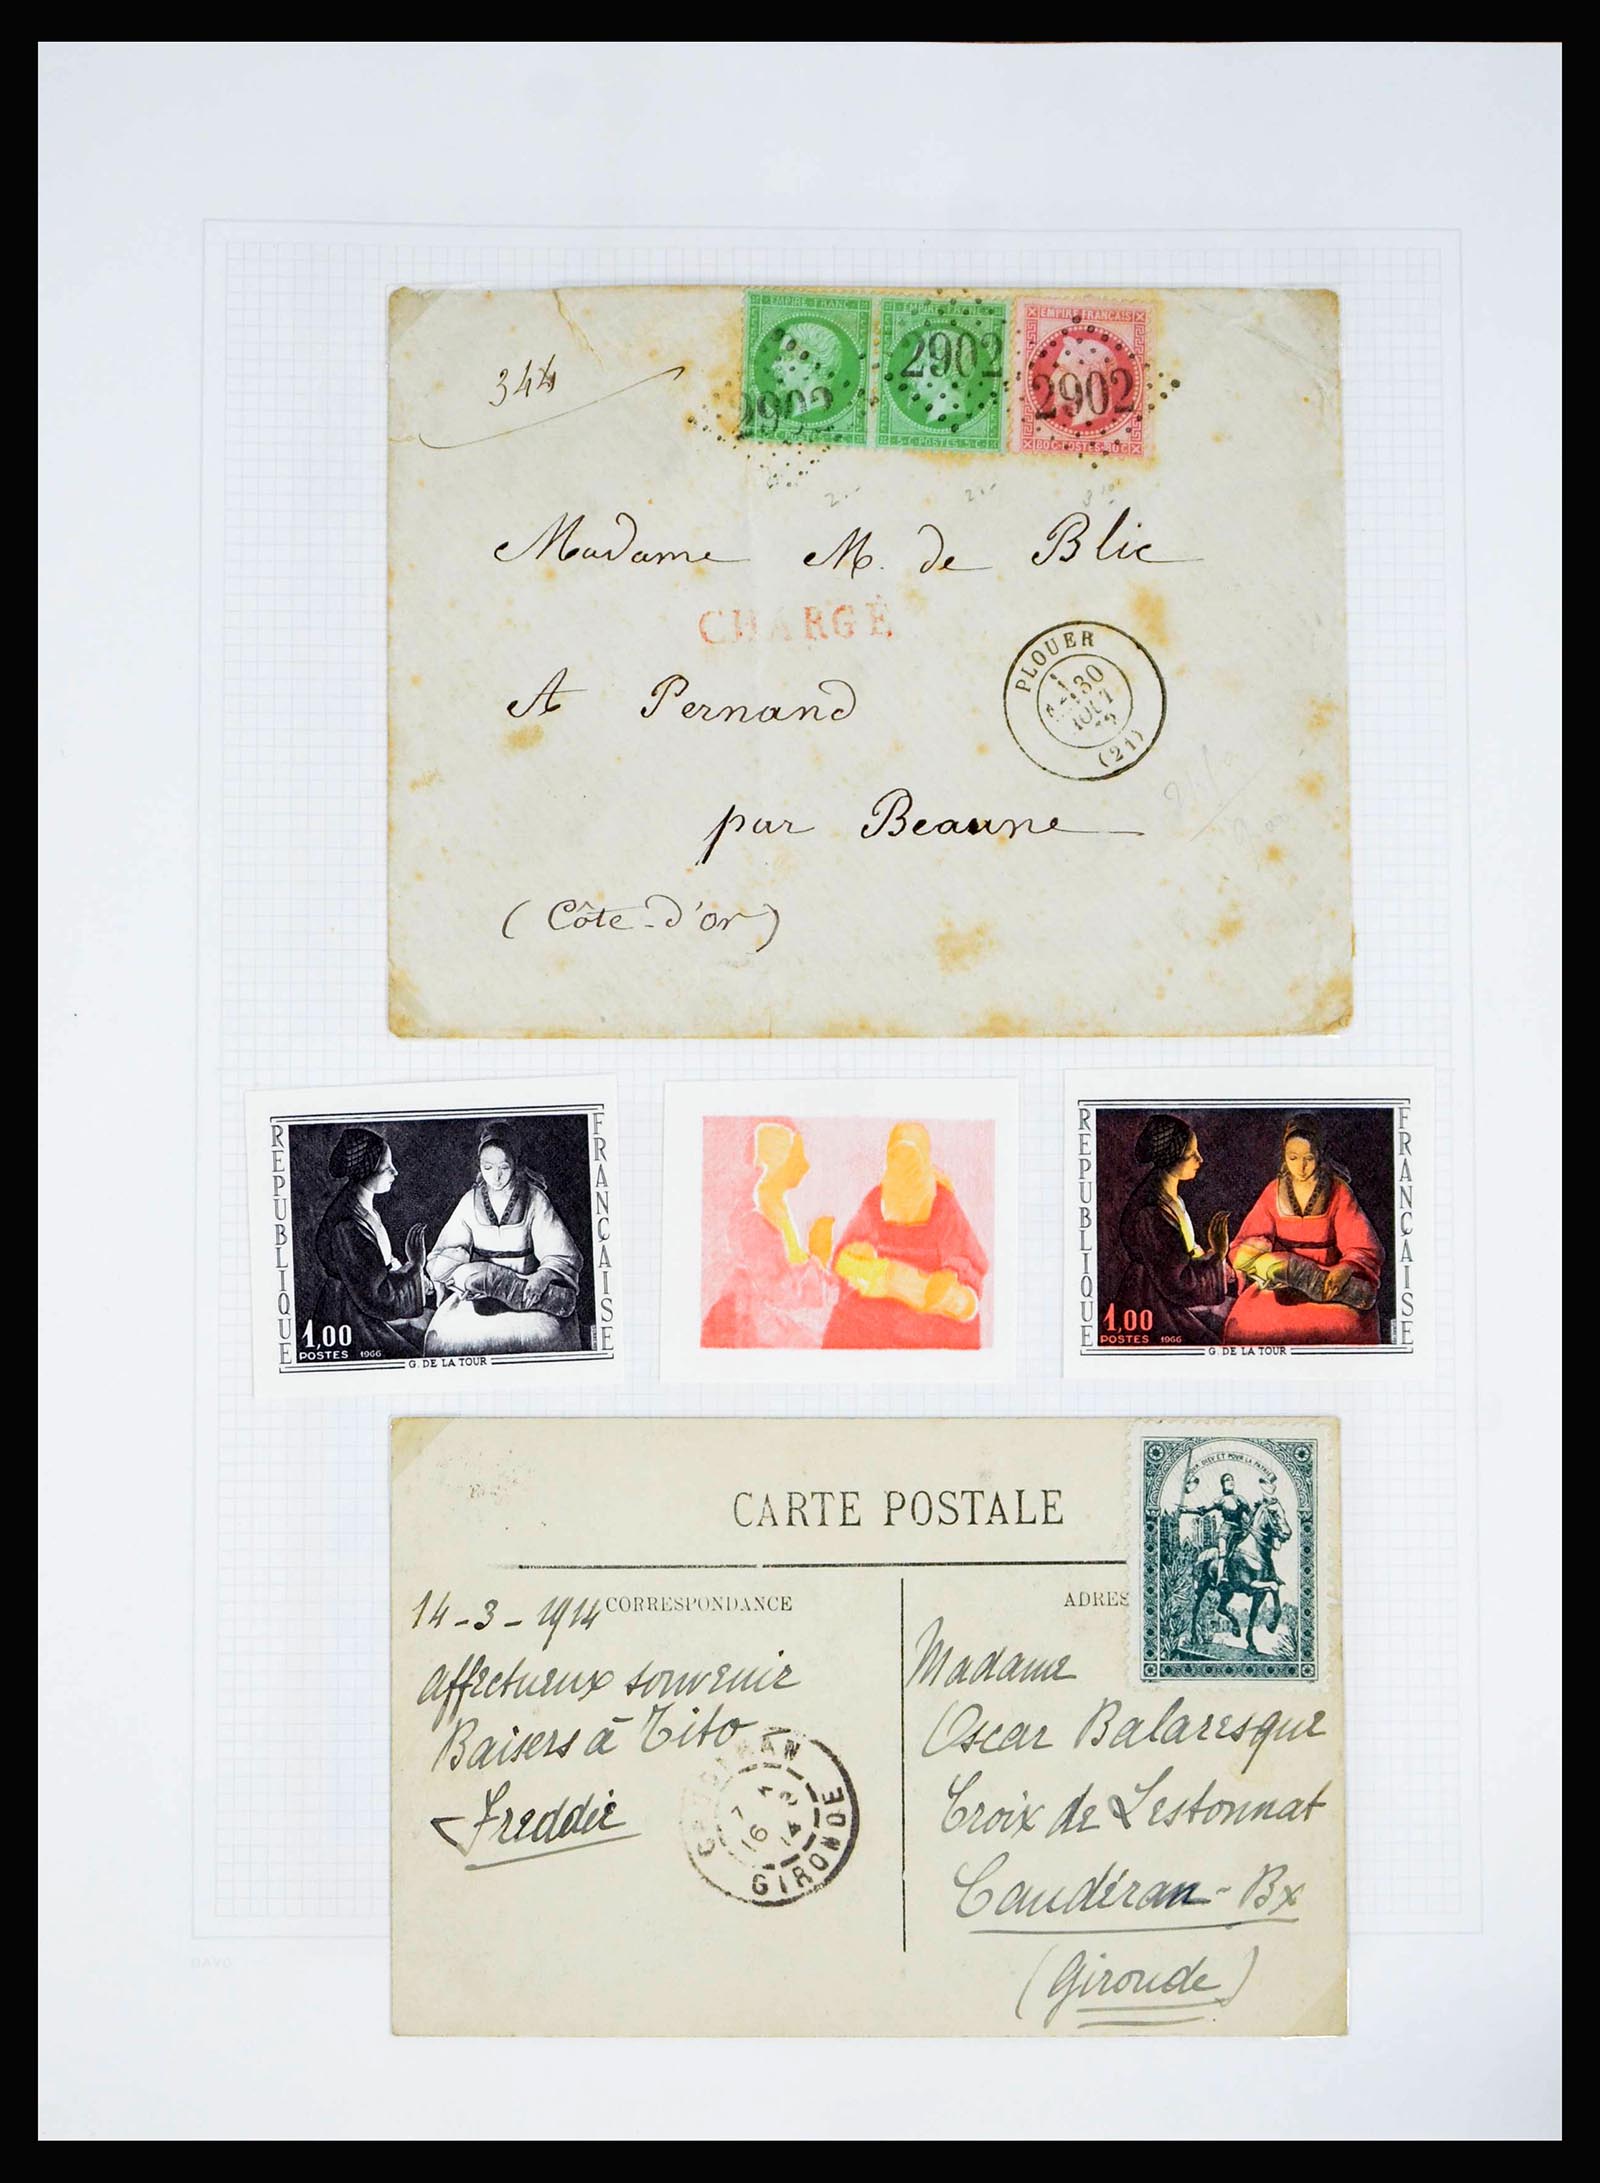 344
EMPIRE FRANC
EMPIRE FRANC
EMPIRE FRANÇAIS
2902
2902
2902
5 C POSTES 5 C
80 C POSTES 80 C
Madame M. de Blic
CHARGÉ
A Pernand
PLOUER
30
AOUT
(21)
par Beaune
(Côte-d'or)
REPUBLIQUE
FRANÇAISE
1,00
POSTES 1966
G. DE LA TOUR
REPUBLIQUE
FRANÇAISE
1,00
POSTES 1966
G. DE LA TOUR
CARTE POSTALE
POUR DIEU ET POUR LA PATRIE
CORRESPONDANCE
ADRES
14-3-1914
Affectueux souvenir
Baisers à Tito
Freddie
GIRONDE
16
Madame
Oscar Balaresque
Croix de Lestonnat
Caudéran-Bx
(Gironde)
DAVO